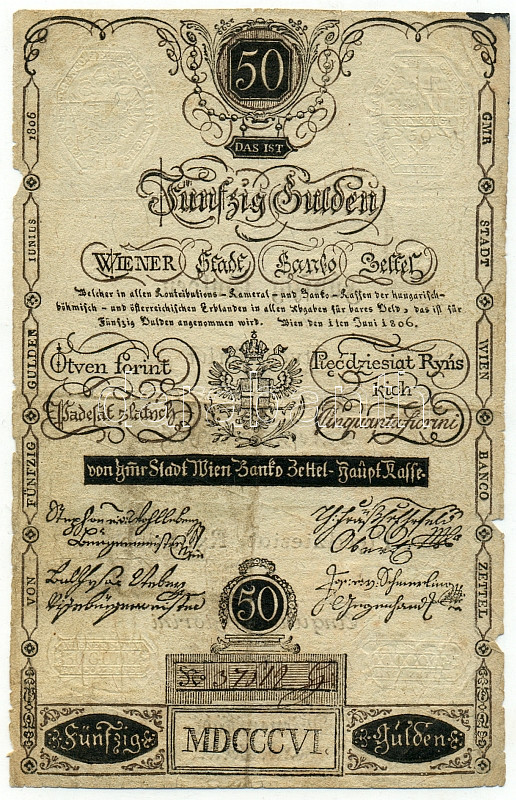 50
DAS IST
Fünfzig Gulden
WIENER Stadt Banko Zettel
Welcher in allen Kontributions-Kameral-und Banko-Kassen der hungarisch-
böhmisch-und österreichischen Erblanden in allen Abgaben für bares Geld, das ist für
Fünfzig Gulden angenommen wird. Wien den 1ten Juni 1806.
Ötven forint
Pięćdziesiat Ryńs
kich
Padesát zlatých
Cinquanta fiorini
von gmr Stadt Wien Banko Zettel-Haupt Kasse.
50
No 37118 G
Fünfzig
MDCCCVI.
Gulden
VON FÜNFZIG GULDEN IUNIUS 1806
GMR STADT WIEN BANCO ZETTEL